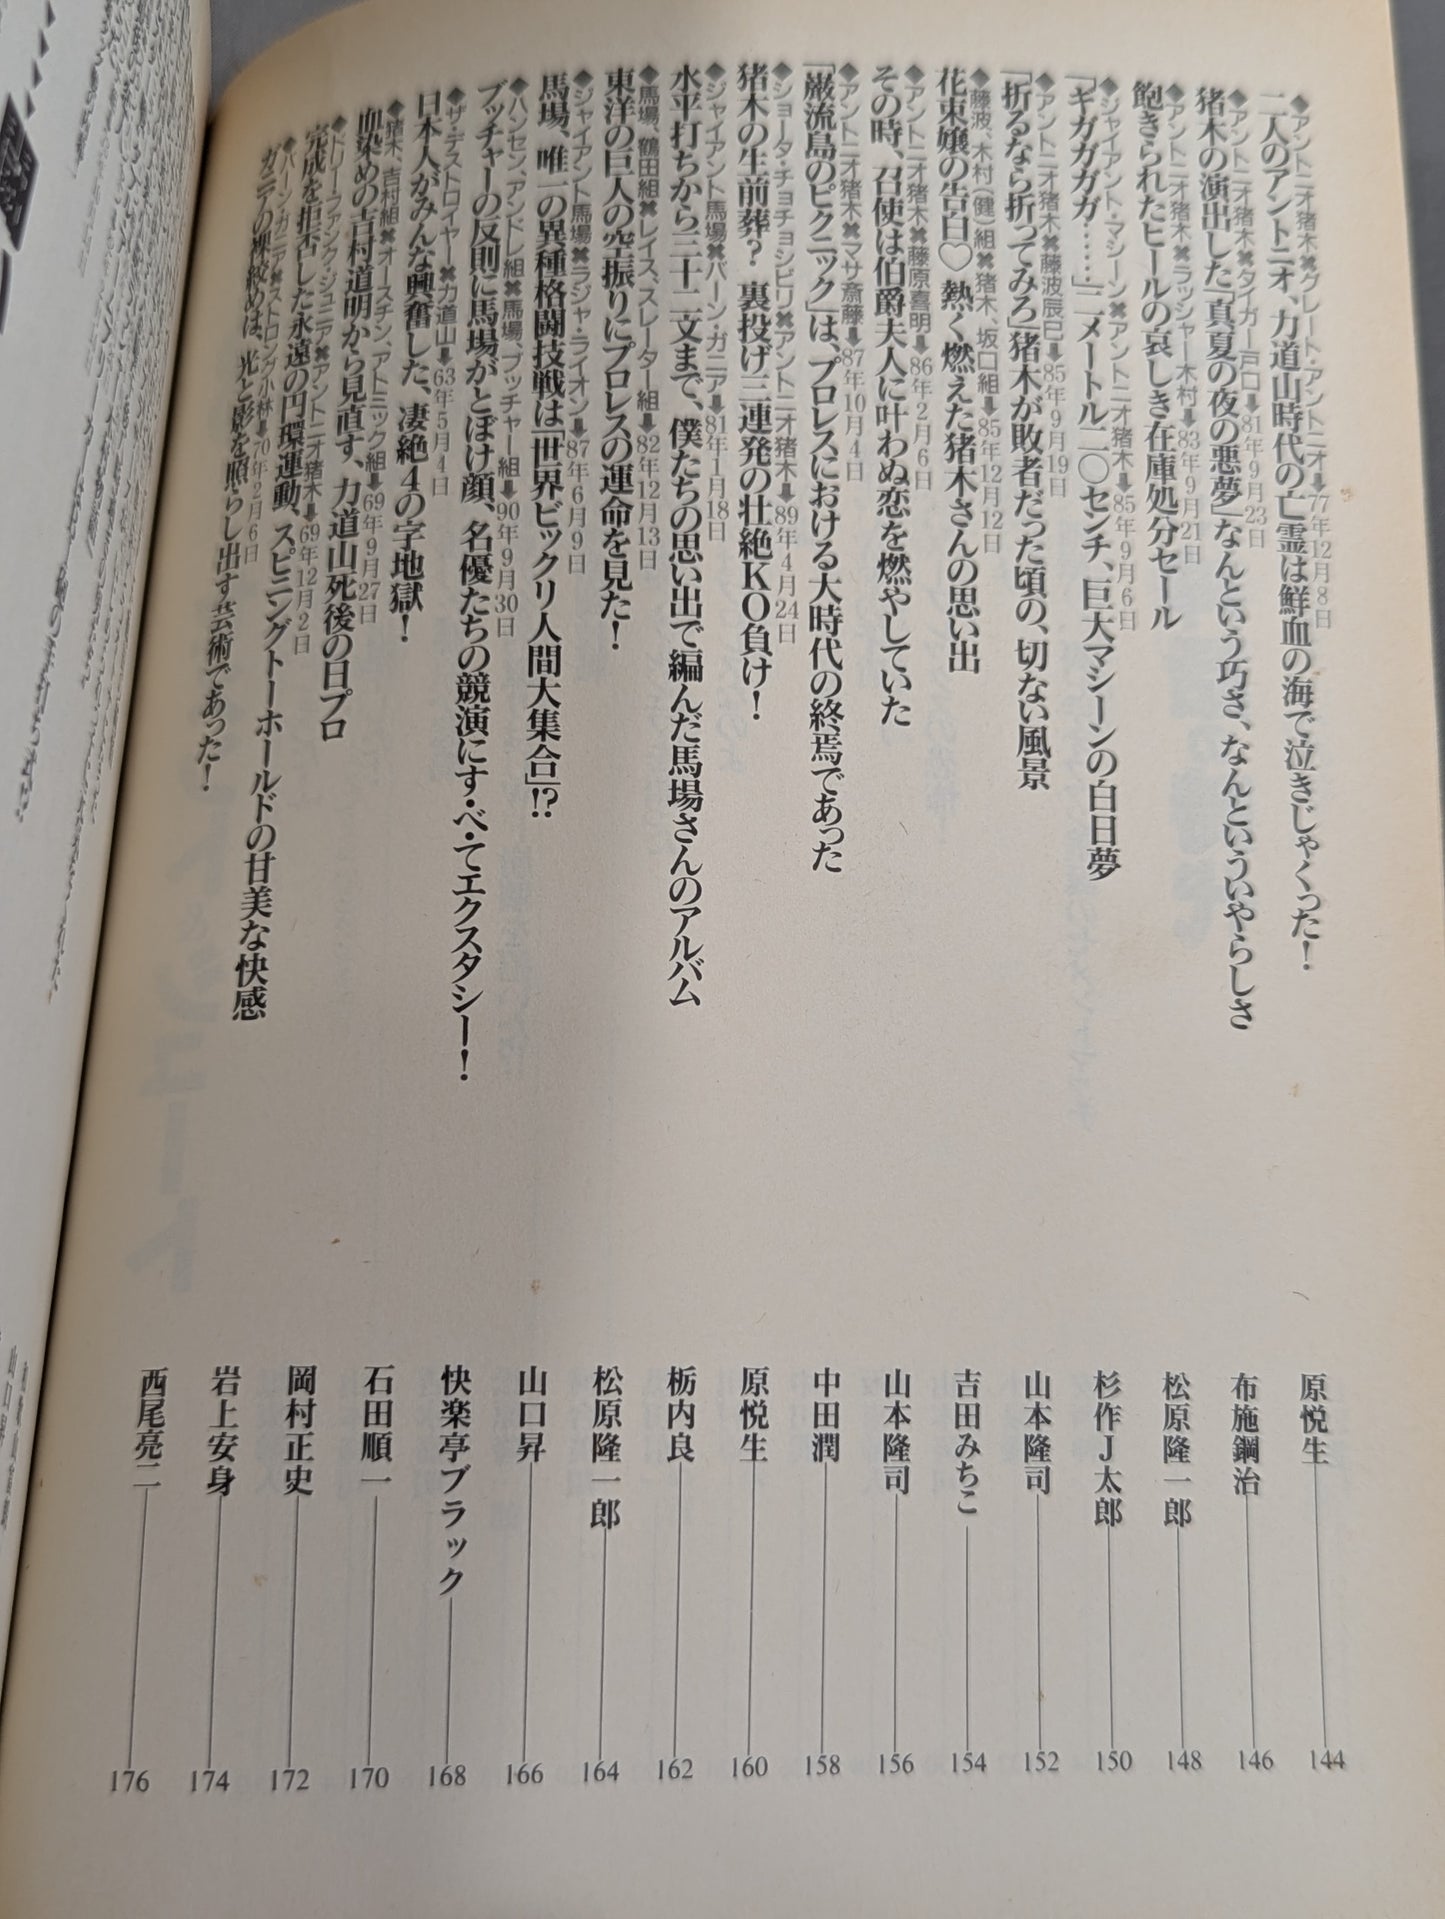 ◆アントニオ猪木✖グレート・アントニオ➡77年12月8日
二人のアントニオ、力道山時代の亡霊は鮮血の海で泣きじゃくった！
原悦生 144
◆アントニオ猪木✖タイガー戸口➡81年9月23日
猪木の演出した「真夏の夜の悪夢」なんという巧さ、なんといういやらしさ
布施鋼治 146
◆アントニオ猪木✖ラッシャー木村➡83年9月21日
飽きられたヒールの哀しき在庫処分セール
松原隆一郎 148
◆ジャイアント・マシーン✖アントニオ猪木➡85年9月6日
「ギガガガガ……」二メートル二〇センチ、巨大マシーンの白日夢
杉作J太郎 150
◆アントニオ猪木✖藤波辰巳➡85年9月19日
「折るなら折ってみろ」猪木が敗者だった頃の、切ない風景
山本隆司 152
◆藤波、木村（健）組✖猪木、坂口組➡85年12月12日
花束嬢の告白♡熱く燃えた猪木さんの思い出
吉田みちこ 154
◆アントニオ猪木✖藤原喜明➡86年2月6日
その時、召使は伯爵夫人に叶わぬ恋を燃やしていた
山本隆司 156
◆アントニオ猪木✖マサ斎藤➡87年10月4日
「巌流島のピクニック」は、プロレスにおける大時代の終焉であった
中田潤 158
◆ショータ・チョチョシビリ✖アントニオ猪木➡89年4月24日
猪木の生前葬？　裏投げ三連発の壮絶KO負け！
原悦生 160
◆ジャイアント馬場✖バーン・ガニア➡81年1月18日
水平打ちから三十二文まで、僕たちの思い出で編んだ馬場さんのアルバム
栃内良 162
◆馬場、鶴田組✖レイス、スレーター組➡82年12月13日
東洋の巨人の空振りにプロレスの運命を見た！
松原隆一郎 164
◆ジャイアント馬場✖ラジャ・ライオン➡87年6月9日
馬場、唯一の異種格闘技戦は「世界ビックリ人間大集合」!?
山口昇 166
◆ハンセン、アンドレ組✖馬場、ブッチャー組➡90年9月30日
ブッチャーの反則に馬場がとぼけ顔、名優たちの競演にす・べ・てエクスタシー！
快楽亭ブラック 168
◆ザ・デストロイヤー✖力道山➡63年5月4日
日本人がみんな興奮した、凄絶4の字地獄！
石田順一 170
◆猪木、吉村組✖オースチン、アトミック組➡69年9月27日
血染めの吉村道明から見直す、力道山死後の日プロ
岡村正史 172
◆ドリー・ファンク・ジュニア✖アントニオ猪木➡69年12月2日
完成を拒否した永遠の円環運動、スピニングトーホールドの甘美な快感
岩上安身 174
◆バーン・ガニア✖ストロング小林➡70年2月6日
ガニアの裸絞めは、光と影を照らし出す芸術であった！
西尾亮二 176